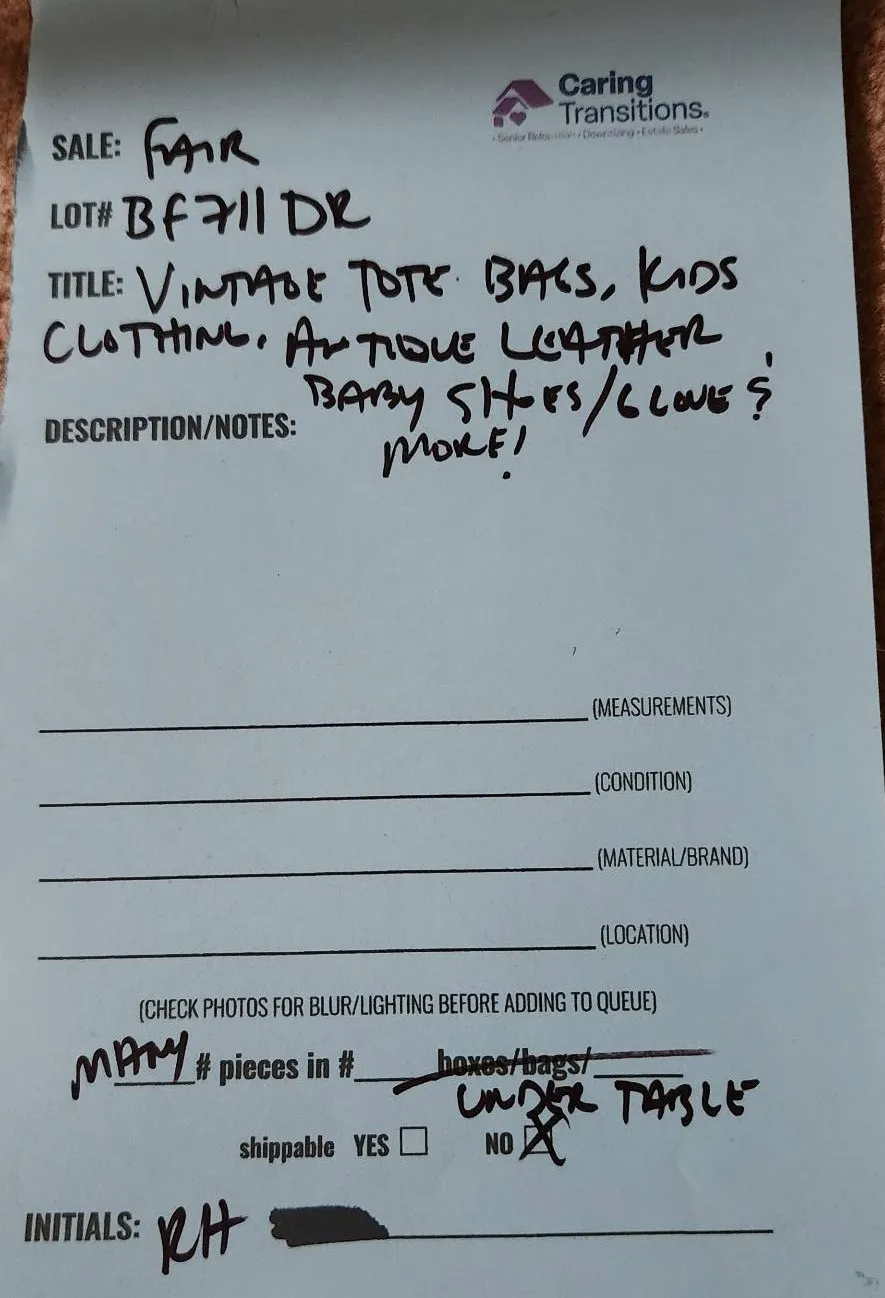 Caring
Transitions.
• Senior Relocation • Downsizing • Estate Sales •
SALE: FAIR
LOT# BF711DR
TITLE: VINTAGE TOTE BAGS, KIDS
CLOTHING, ANTIQUE LEATHER
BABY SHOES/GLOVES,
DESCRIPTION/NOTES:
MORE!
(MEASUREMENTS)
(CONDITION)
(MATERIAL/BRAND)
(LOCATION)
(CHECK PHOTOS FOR BLUR/LIGHTING BEFORE ADDING TO QUEUE)
MANY # pieces in # boxes/bags/
UNDER TABLE
shippable YES NO X
INITIALS: RH